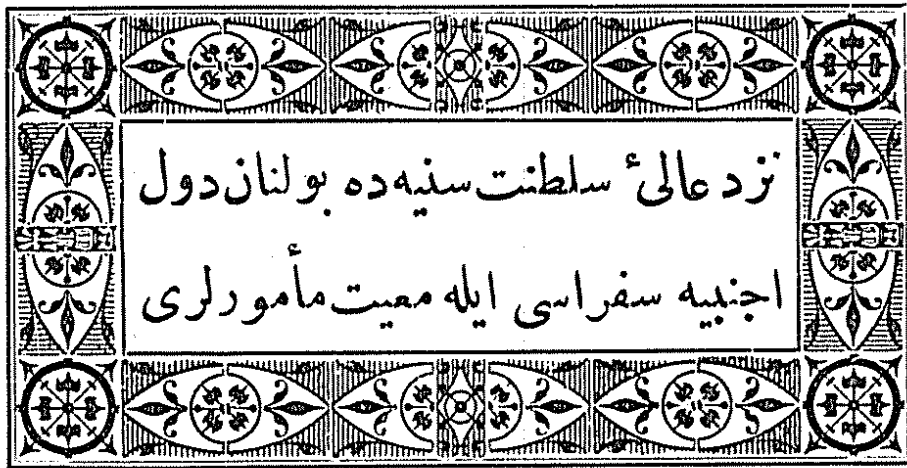 نزد عالیٔ سلطنت سنیه ده بولنان دول
اجنبیه سفراسی ایله معیت مأمورلری